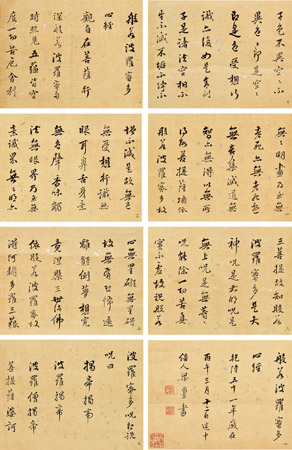 般若波羅蜜多
心經
觀自在菩薩行
深般若波羅蜜多
時照見五蘊皆空
度一切苦厄舍利
子色不異空空不
異色色即是空空
即是色受想行
識亦復如是舍利
子是諸法空相不
生不滅不垢不淨不
增不減是故空中
無受想行識無
眼耳鼻舌身意
無色聲香味觸
法無眼界乃至無
意識界無無明亦
無無明盡乃至無
老死亦無老死盡
無苦集滅道無
智亦無得以無所
得故菩提薩埵依
般若波羅蜜多故
心無罣礙無罣礙
故無有恐怖遠
離顛倒夢想究
竟涅槃三世諸佛
依般若波羅蜜多故
得阿耨多羅三藐
三菩提故知般若
波羅蜜多是大
神咒是大明咒是
無上咒是無等等
咒能除一切苦真
實不虛故說般若
波羅蜜多咒即說
咒曰
揭帝揭帝
波羅揭帝
波羅僧揭帝
菩提薩婆訶
般若波羅蜜多
心經
乾隆五十一年歲在
丙午三月十二日